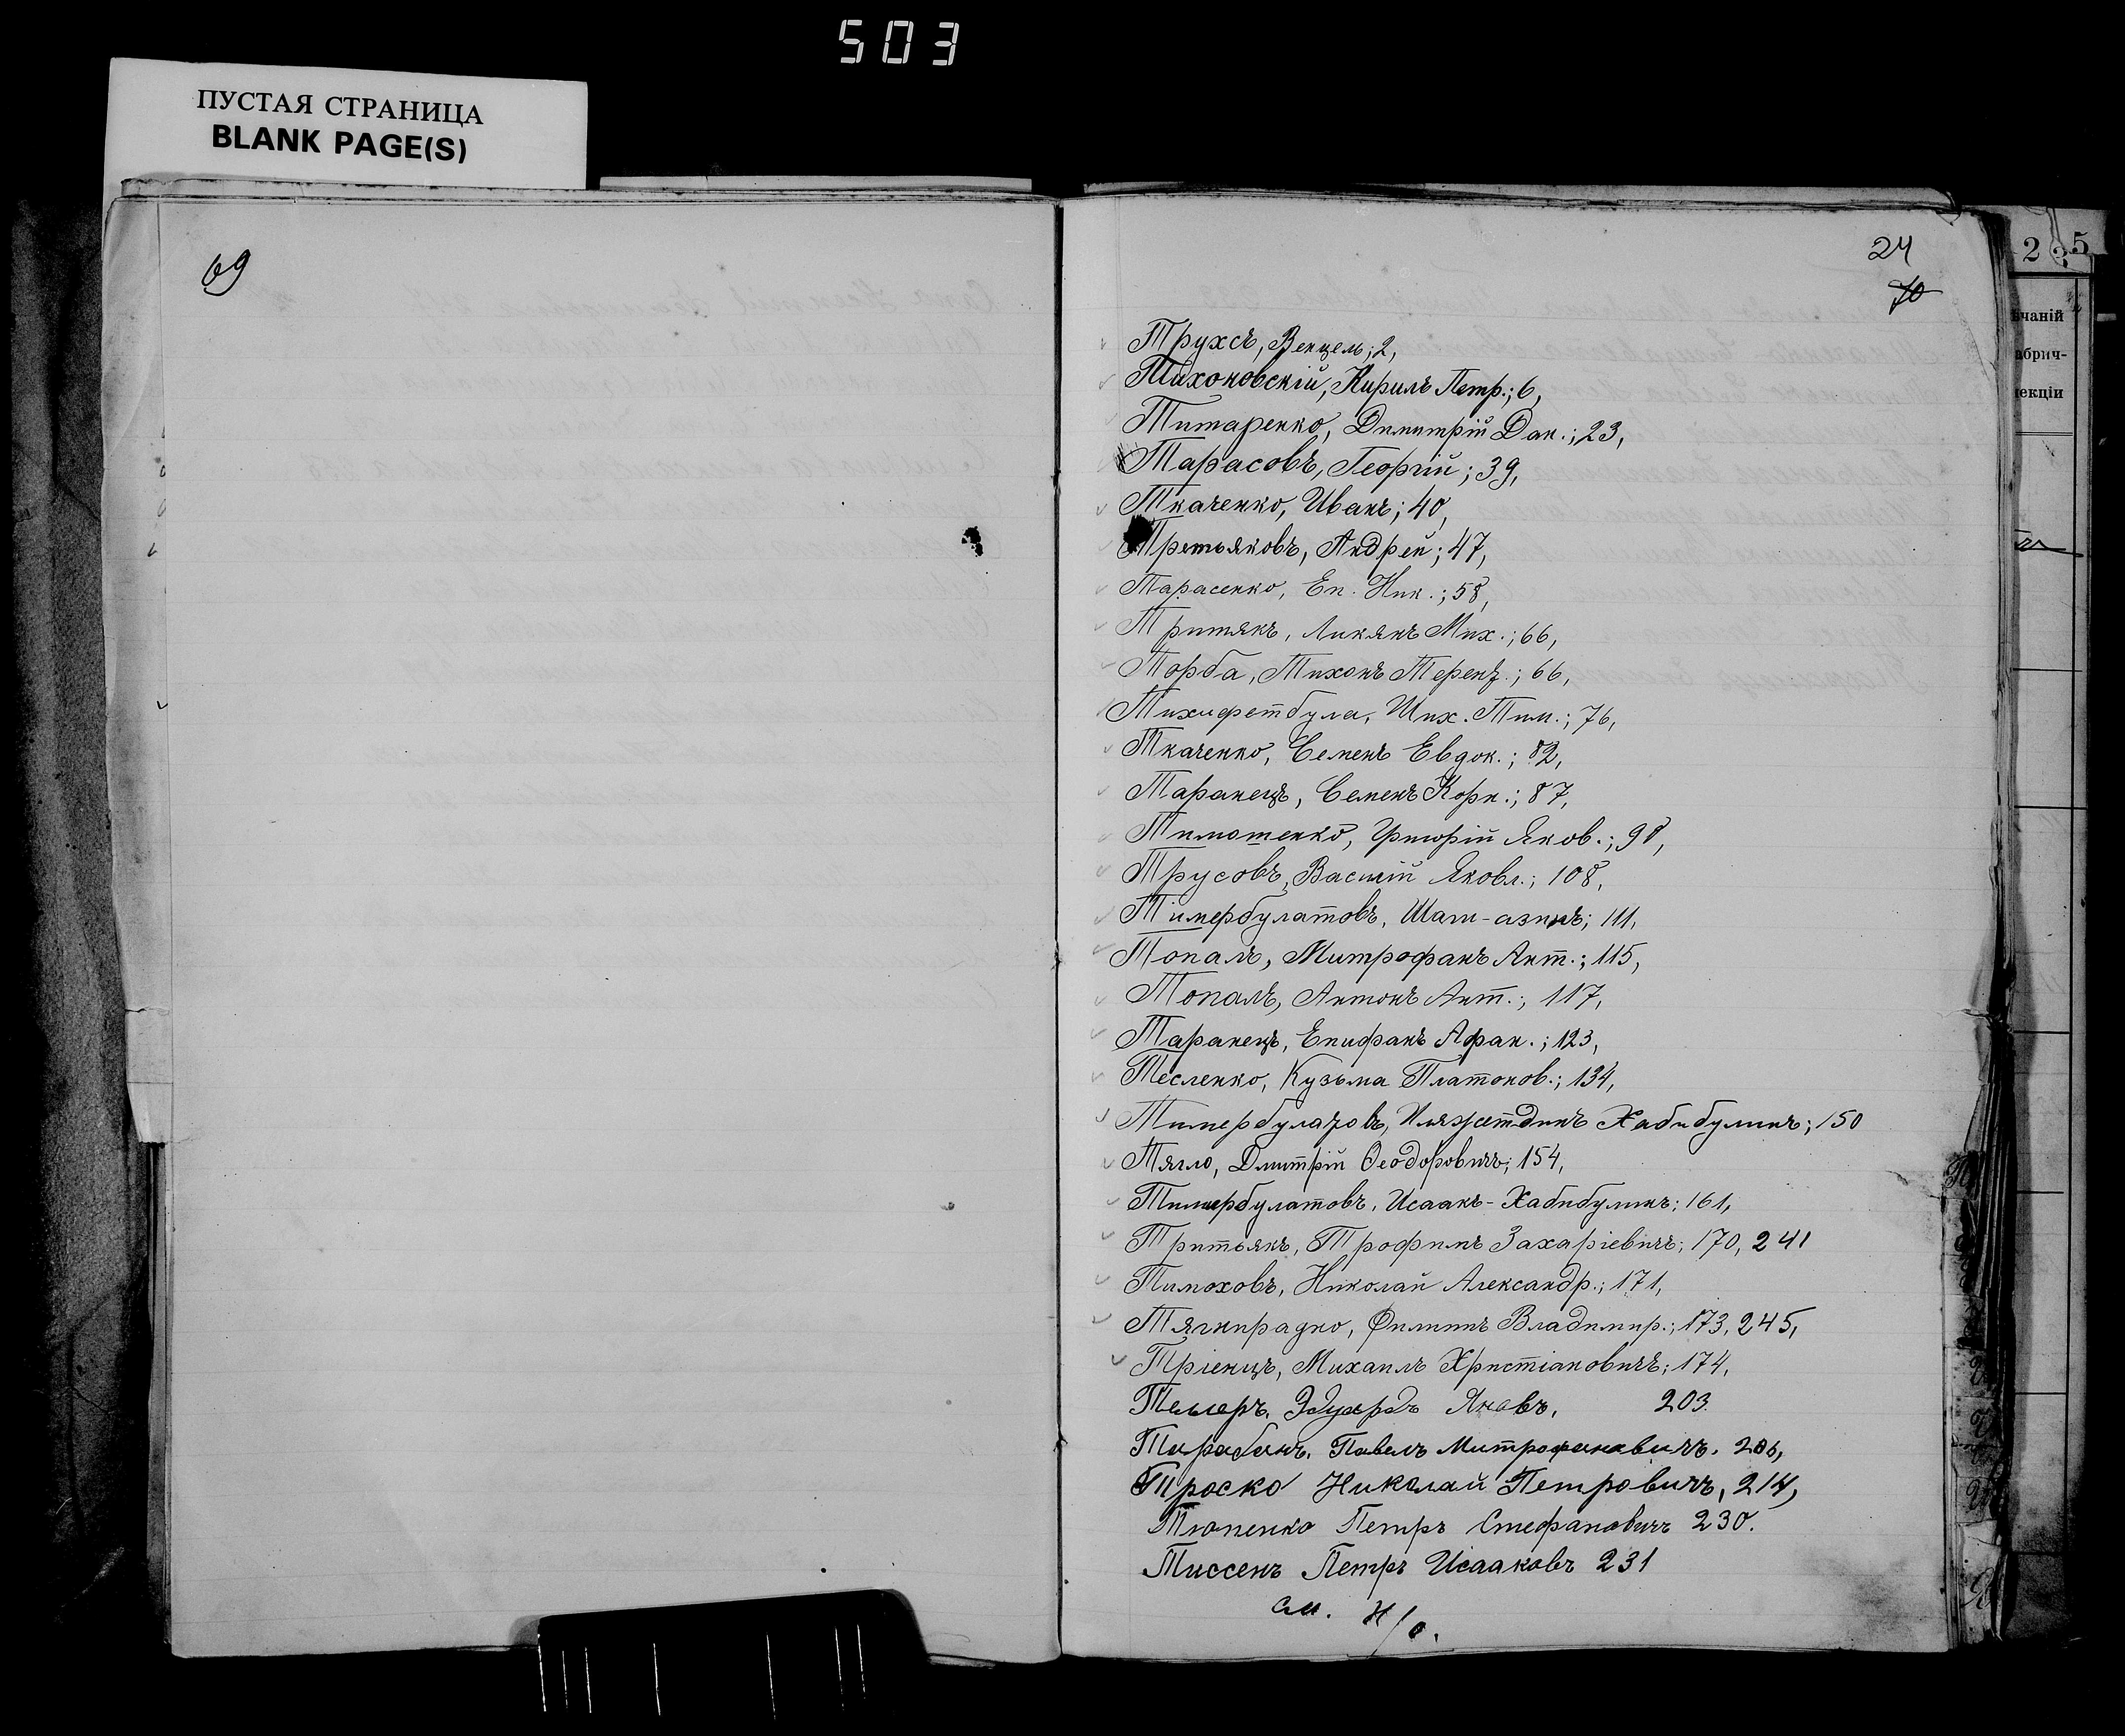 503
ПУСТАЯ СТРАНИЦА
BLANK PAGE(S)
69
24
70
2 5
чаній
абрич-
пекціи
Трухсъ, Венцель; 2,
Тихоновскій, Кирилъ Петр.; 6,
Титаренко, Димитрій Дан.; 23,
Тарасовъ, Георгій; 39,
Ткаченко, Иванъ; 40,
Третьяковъ, Андрей; 47,
Тарасенко, Еп. Ник.; 58,
Тритякъ, Ликянъ Мих.; 66,
Торба, Тихонъ Терент.; 66,
Тим.; 76,
Ткаченко, Семенъ Евдок.; 82,
Таранецъ, Семенъ Корн.; 87,
Тимошенко, Григорій Яков.; 98,
Трусовъ, Василій Яковл.; 108,
Тимербулатовъ, Шаги-азимъ; 111,
Топалъ, Митрофанъ Ант.; 115,
Топалъ, Антонъ Ант.; 117,
Таранецъ, Епифанъ Афан.; 123,
Тесленко, Кузьма Платонов.; 134,
Тимербулатовъ, Хабибулинъ; 150
Тягло, Дмитрій Ѳеодоровичъ; 154,
Тимербулатовъ, Исаакъ-Хабибулинъ; 161,
Тритьякъ, Трофимъ Захаріевичъ; 170, 241
Тимоховъ, Николай Александр.; 171,
Тягнирядно, Филиппъ Владимир.; 173, 245,
Тріенцъ, Михаилъ Христіановичъ; 174,
Эдуардъ Яковъ, 203
Тарабанъ, Павелъ Митрофановичъ, 206,
Троско Николай Петровичъ, 214,
Тюпенко Петръ Стефановичъ 230.
Тиссенъ Петръ Исааковъ 231
см. н/о.